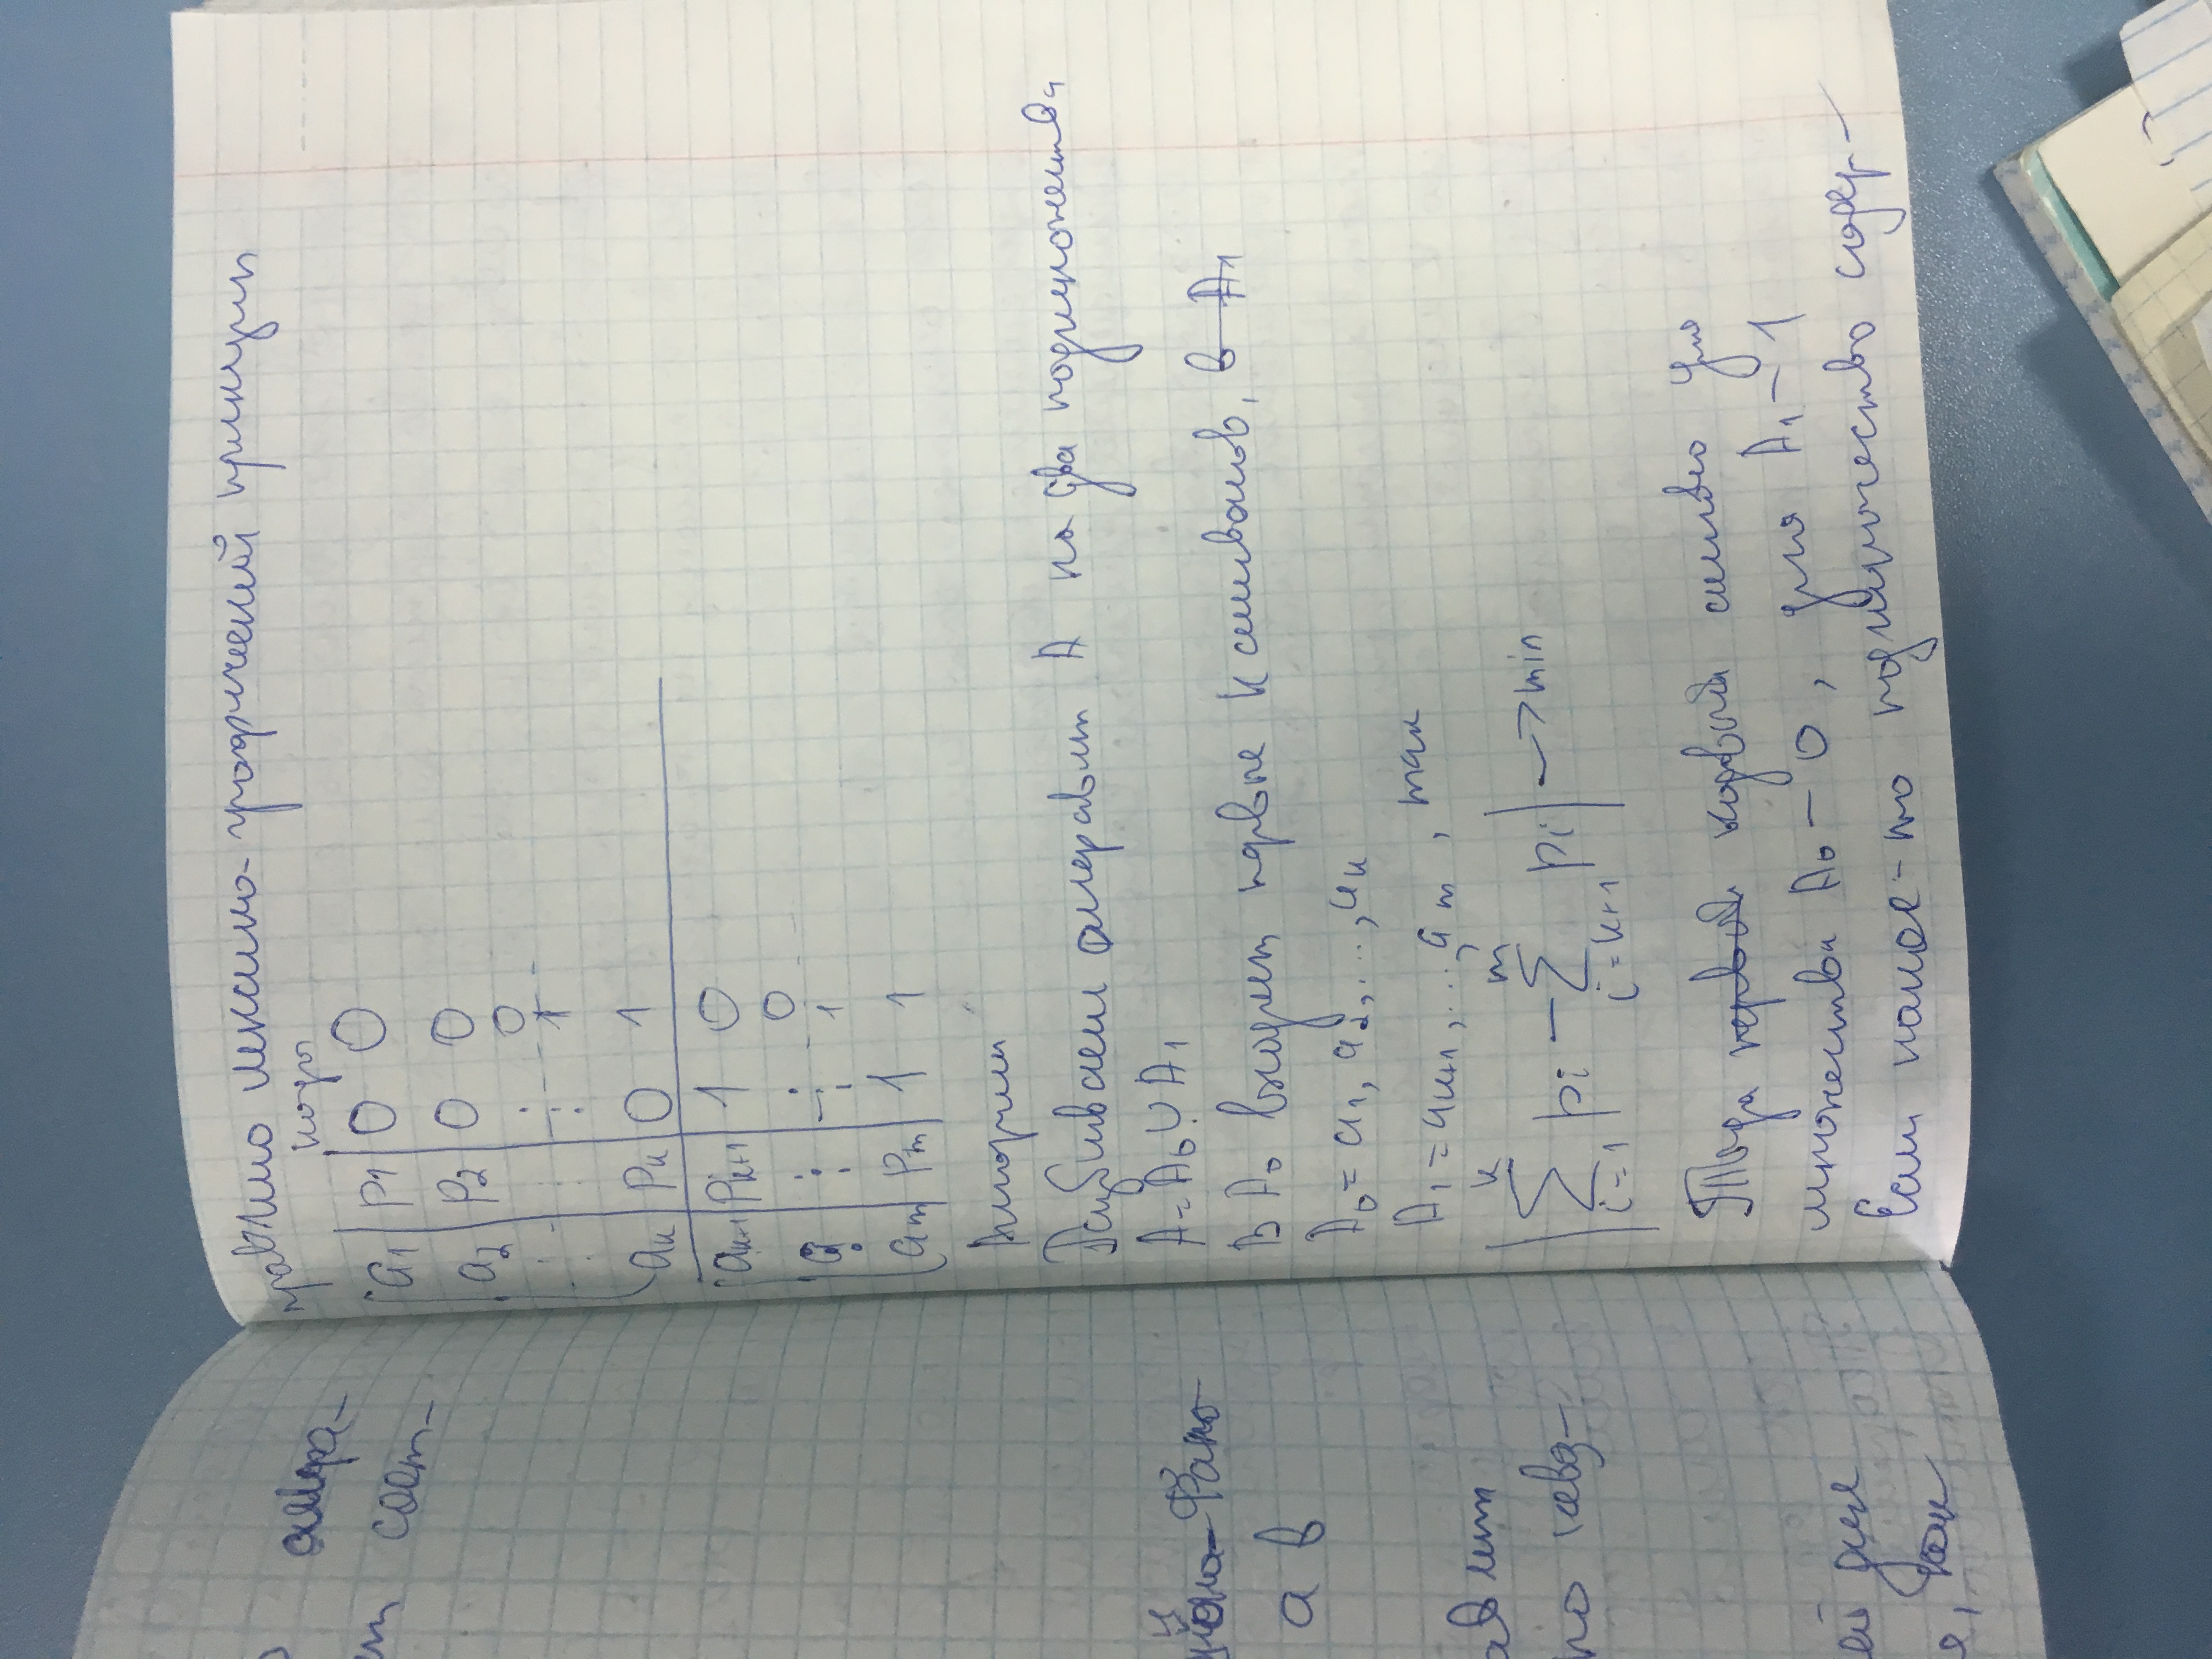 алфа-
соот-
Фано
а в
авит
по
ей для
я, как
правило лексико-графический принцип
коды
a1 | p1 | 0 0
a2 | p2 | 0 0
⋮ ⋮ ⋮ 0
⋮ 1
ak | pk | 0 1
ak+1 | pk+1 | 1 0
⋮ ⋮ ⋮ 0
⋮ 1
am | pm | 1 1
Алгоритм
Разбиваем алфавит A на два подмножества
A = A0 ∪ A1
В A0 входят первые k символов, в A1
A0 = a1, a2, ..., ak
A1 = ak+1, ..., am, так
|∑_{i=1}^{k} pi − ∑_{i=k+1}^{m} pi| → min
Тогда первый кодовый символ для
множества A0 − 0, для A1 − 1
Если какое-то подмножество содер-